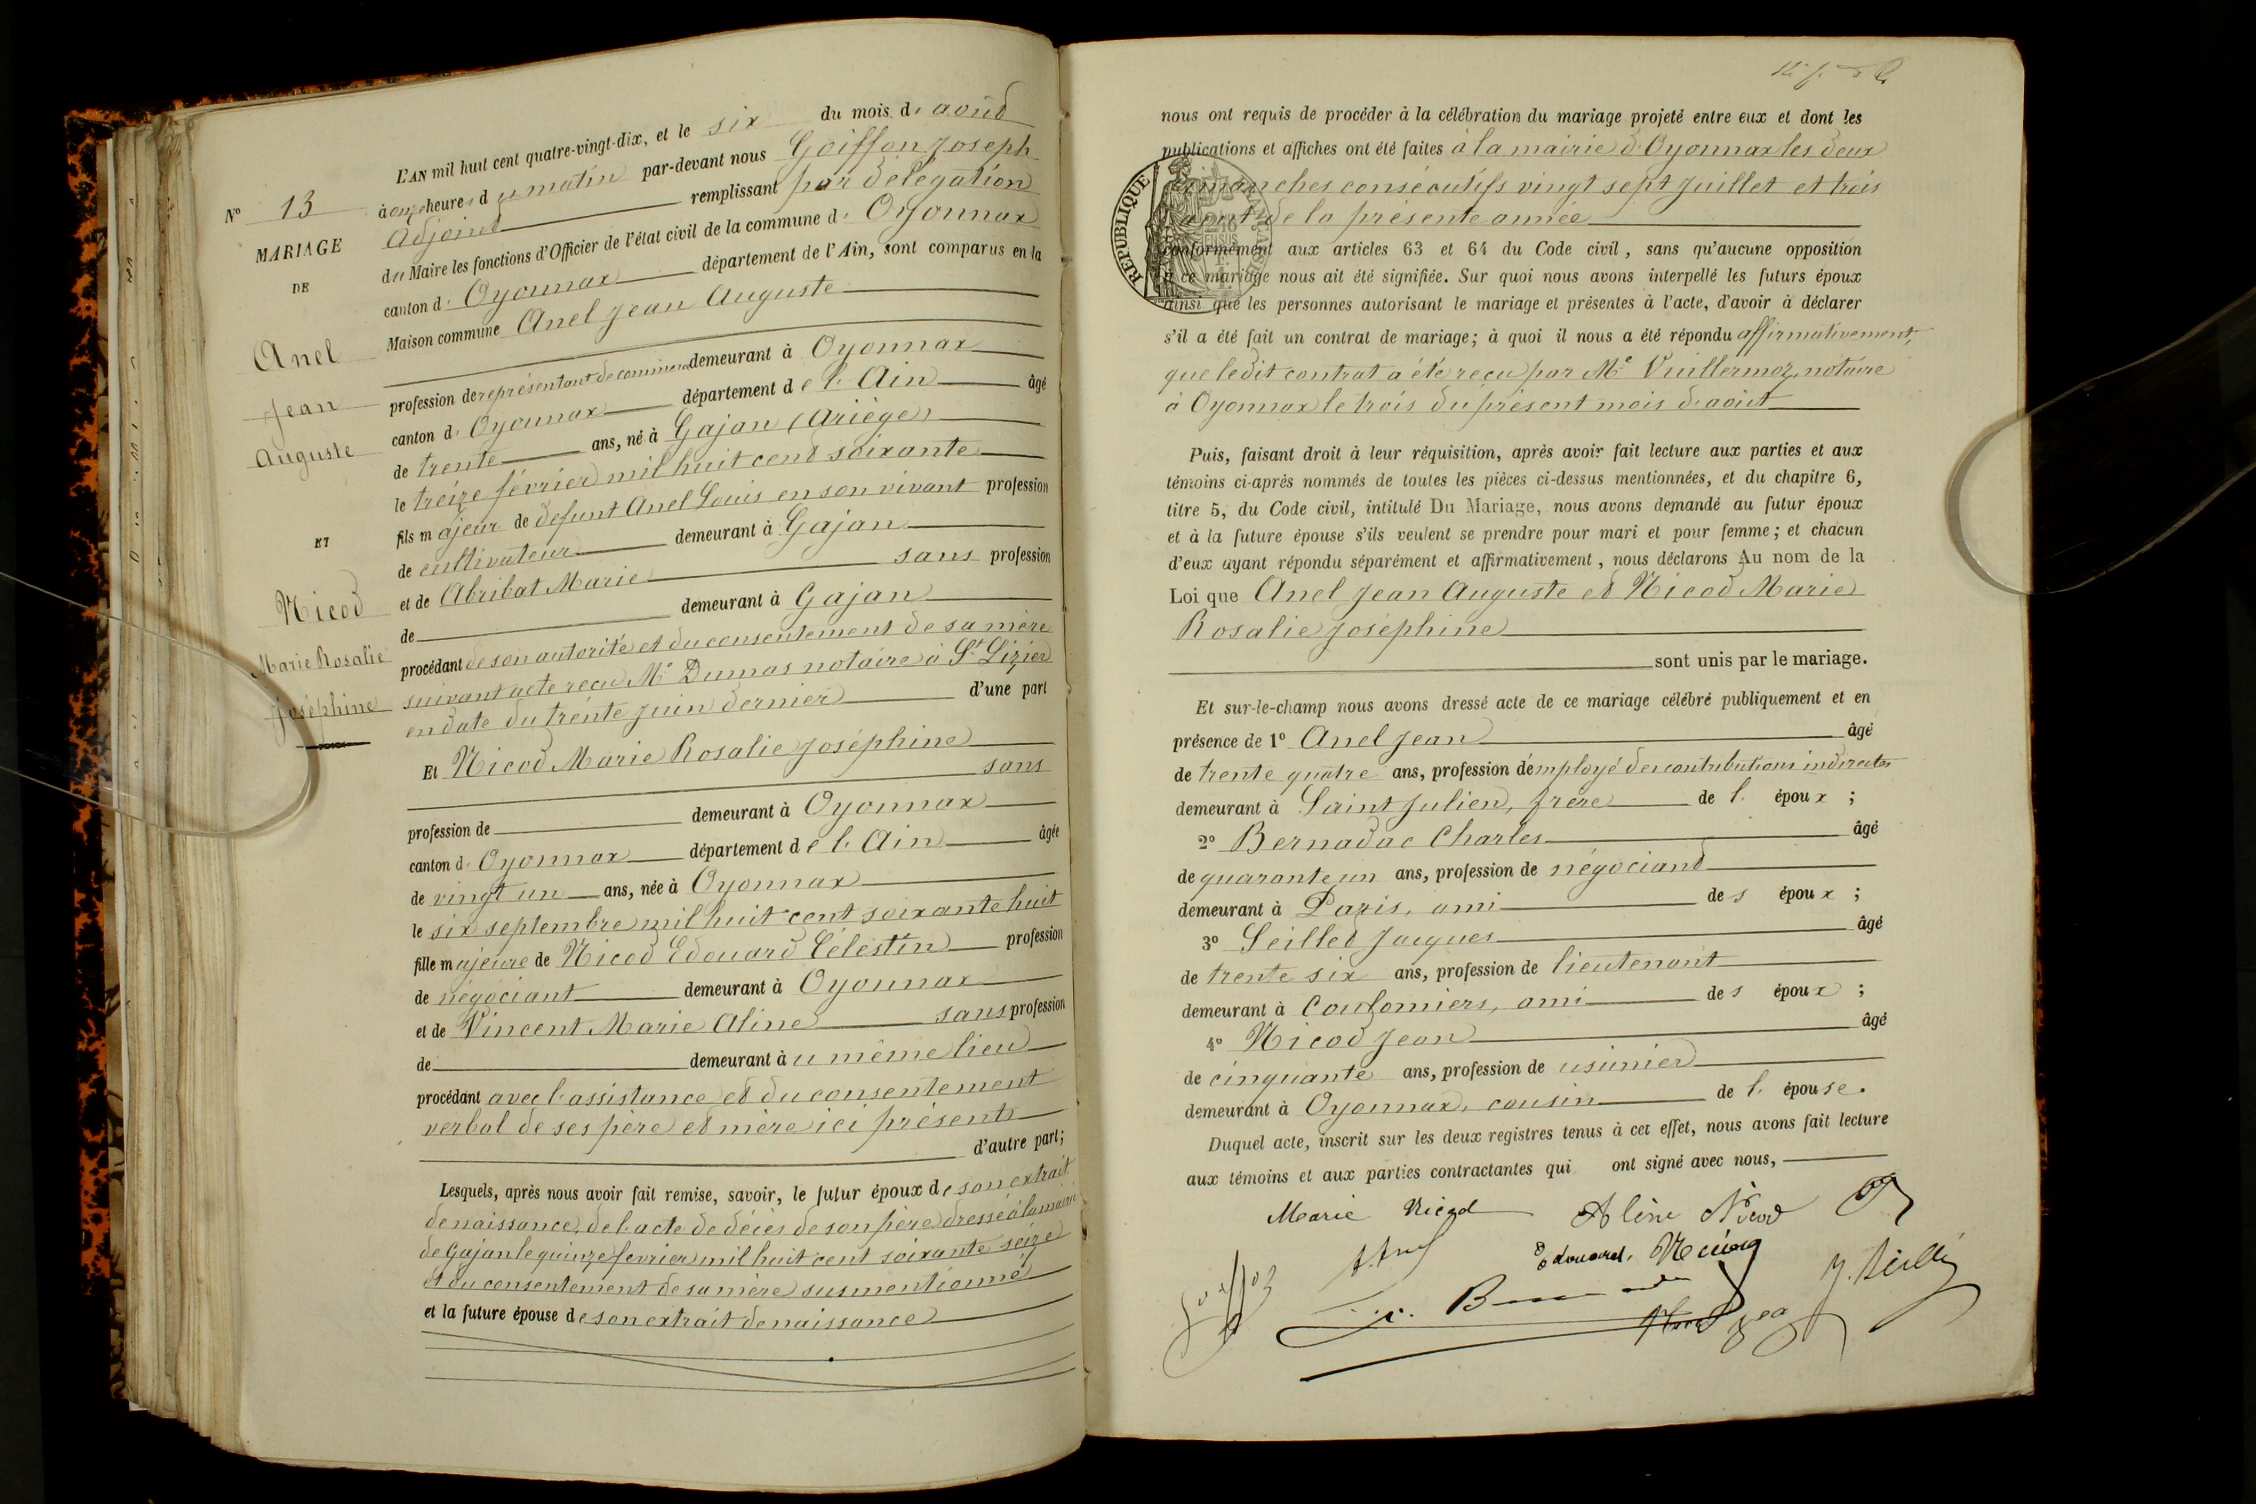 L'AN mil huit cent quatre-vingt-dix, et le six du mois d'août
à onze heures du matin par-devant nous Goiffon Joseph
adjoint remplissant par délégation
du Maire les fonctions d'Officier de l'état civil de la commune d'Oyonnax
canton d'Oyonnax département de l'Ain, sont comparus en la
Maison commune Anel Jean Auguste
profession de représentant de commerce demeurant à Oyonnax
canton d'Oyonnax département de l'Ain âgé
de trente ans, né à Gajan (Ariège)
le treize février mil huit cent soixante
fils majeur de défunt Anel Louis en son vivant profession
de cultivateur demeurant à Gajan
et de Abribat Marie sans profession
de demeurant à Gajan
procédant de son autorité et du consentement de sa mère
suivant acte reçu Me Dumas notaire à St Lizier
en date du trente juin dernier d'une part
Et Nicod Marie Rosalie Joséphine
sans
profession de demeurant à Oyonnax
canton d'Oyonnax département de l'Ain âgée
de vingt un ans, née à Oyonnax
le six septembre mil huit cent soixante huit
fille majeure de Nicod Edouard Célestin profession
de négociant demeurant à Oyonnax
et de Vincent Marie Aline sans profession
de demeurant au même lieu
procédant avec l'assistance et du consentement
verbal de ses père et mère ici présents
d'autre part;
Lesquels, après nous avoir fait remise, savoir, le futur époux de son extrait
de naissance, de l'acte de décès de son père dressé à la mairie
de Gajan le quinze février mil huit cent soixante seize
et du consentement de sa mère susmentionné
et la future épouse de son extrait de naissance
No 13
MARIAGE
DE
Anel
Jean
Auguste
ET
Nicod
Marie Rosalie
Joséphine
nous ont requis de procéder à la célébration du mariage projeté entre eux et dont les
publications et affiches ont été faites à la mairie d'Oyonnax les deux
dimanches consécutifs vingt sept juillet et trois
août de la présente année
conformément aux articles 63 et 64 du Code civil, sans qu'aucune opposition
à ce mariage nous ait été signifiée. Sur quoi nous avons interpellé les futurs époux
ainsi que les personnes autorisant le mariage et présentes à l'acte, d'avoir à déclarer
s'il a été fait un contrat de mariage; à quoi il nous a été répondu affirmativement,
que ledit contrat a été reçu par Me Vuillermoz, notaire
à Oyonnax le trois du présent mois d'août
RÉPUBLIQUE FRANÇAISE
Puis, faisant droit à leur réquisition, après avoir fait lecture aux parties et aux
témoins ci-après nommés de toutes les pièces ci-dessus mentionnées, et du chapitre 6,
titre 5, du Code civil, intitulé Du Mariage, nous avons demandé au futur époux
et à la future épouse s'ils veulent se prendre pour mari et pour femme; et chacun
d'eux ayant répondu séparément et affirmativement, nous déclarons Au nom de la
Loi que Anel Jean Auguste et Nicod Marie
Rosalie Joséphine
sont unis par le mariage.
Et sur-le-champ nous avons dressé acte de ce mariage célébré publiquement et en
présence de 1o Anel Jean âgé
de trente quatre ans, profession d'employé des contributions indirectes
demeurant à Saint Julien, frère de l'époux;
2o Bernadac Charles âgé
de quarante un ans, profession de négociant
demeurant à Paris, ami des époux;
3o Seillet Jacques âgé
de trente six ans, profession de lieutenant
demeurant à Coulomiers, ami des époux;
4o Nicod Jean âgé
de cinquante ans, profession de usinier
demeurant à Oyonnax, cousin de l'épouse.
Duquel acte, inscrit sur les deux registres tenus à cet effet, nous avons fait lecture
aux témoins et aux parties contractantes qui ont signé avec nous,
Marie Nicod Aline Nicod
Edouard Nicod
Goiffon